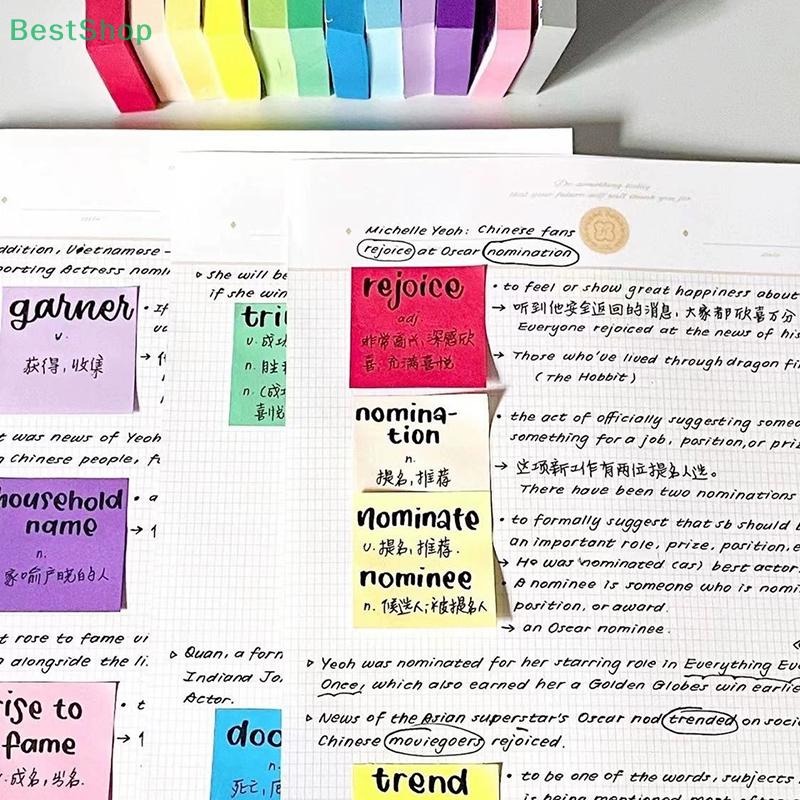 BestShop
Do something today
that your future self will thank you for
Michelle Yeoh: Chinese fans
rejoice at Oscar nomination
rejoice
adj.
非常高兴,深感欣
喜,充满喜悦
• to feel or show great happiness about
→ 听到他安全返回的消息,大家都欣喜万分
Everyone rejoiced at the news of his
→ Those who've lived through dragon fi
(The Hobbit)
nomina-
tion
n.
提名,推荐
• the act of officially suggesting someo
something for a job, position, or priz
→ 这项新工作有两位提名人选。
There have been two nominations
nominate
v. 提名,推荐.
nominee
n. 候选人;被提名人
• to formally suggest that sb should b
an important role, prize, position, e
→ He was nominated (as) best actor
• A nominee is someone who is nomin
position, or award.
→ an Oscar nominee.
▹ Yeoh was nominated for her starring role in Everything Eve
Once, which also earned her a Golden Globes win earlie
▹ News of the Asian superstar's Oscar nod trended on soci
Chinese moviegoers rejoiced.
trend
• to be one of the words, subjects
is being mentioned most often
▹ She will be
if she win
tri
v. 成功
n. 胜
n. (战
喜悦
▹ Quan, a form
Indiana Jo
Actor.
doo
n.
死亡,厄
ddition, Vietnamese-
porting Actress nomi
garner
v.
获得,收集
• If
t was news of Yeoh
n Chinese people, f
household
name
n.
家喻户晓的人
• a
t rose to fame vi
n alongside the li
rise to
fame
v. 成名,出名.
• t